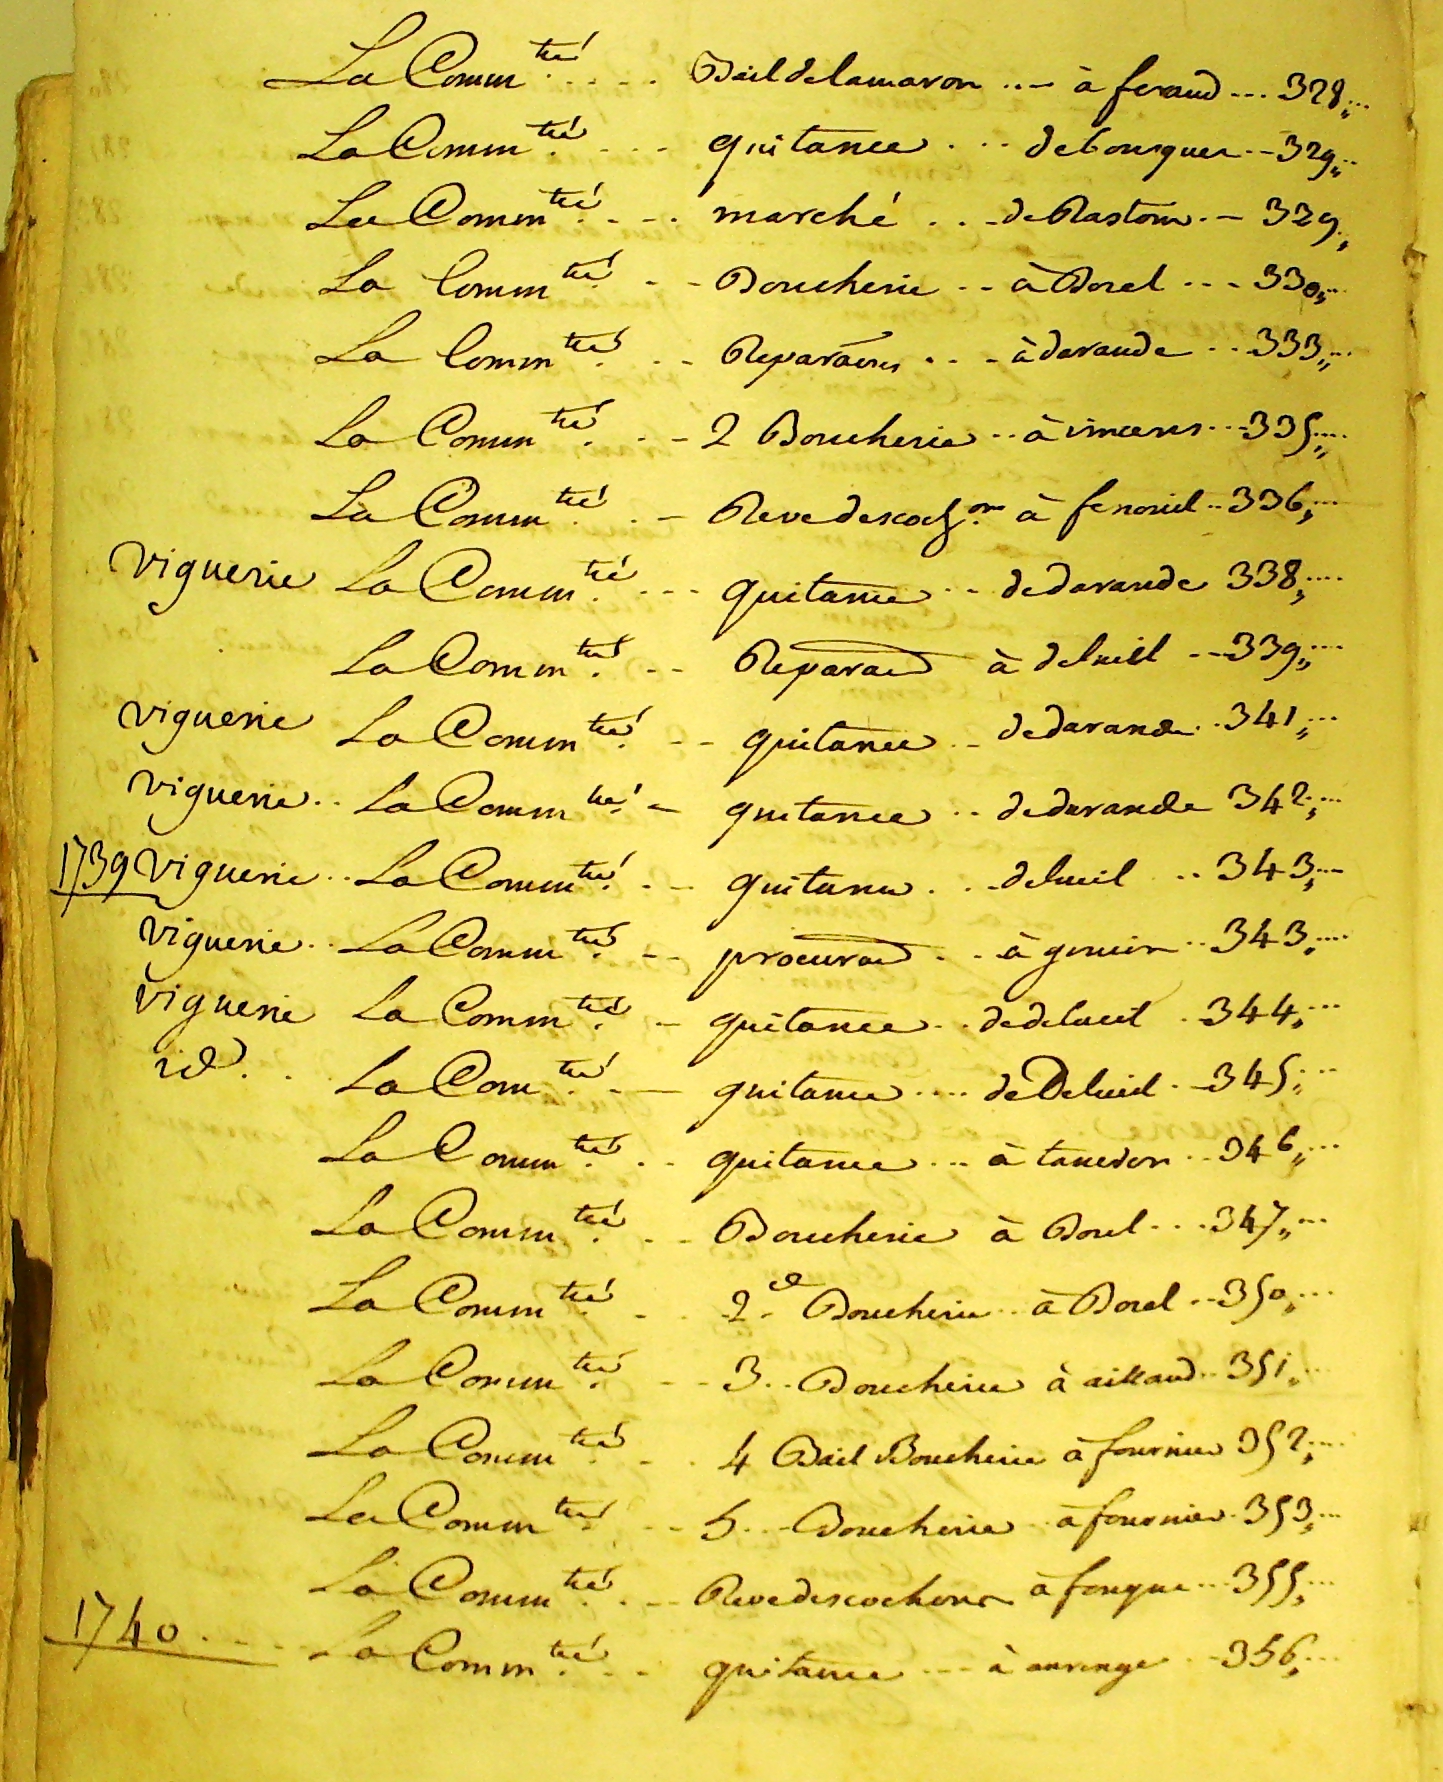 La Comm.té ..... Bail de lamaron ... à feraud ... 328,,...
La Comm.té ... quitance ... debourguer .. 329,,..
La Comm.té ... marché ... de Rastoin .. 329,,
La Comm.té .. Boucherie .. à Borel ... 330,,...
La Comm.té .. Reparaons ... à daraude .. 333,,...
La Comm.té .. 2 Boucherie .. à vincens ... 335,,...
La Comm.té .. Reve descochons à fenouil .. 336,,...
Viguerie La Comm.té ... quitance .. dedaraude 338,,...
La Comm.té .. Reparaõn à deluëil .. 339,,...
Viguerie La Comm.té .. quitance .. dedaraude .. 341,,...
Viguerie .. La Comm.té - quitance .. dedaraude 342,,...
1739 Viguerie .. La Comm.té .. quitance ... delueil .. 343,,...
Viguerie .. La Comm.té .. procuraõn .. à 343,,...
Viguerie La Comm.té - quitance .. dedelueil . 344,,...
id. . La Com.té - quitance .... de Delueil . 345,,...
La Comm.té .. quitance ... à taneron .. 346,,...
La Comm.té .. Boucherie à Borel ... 347,,...
La Comm.té . 2.e Boucherie .. à Borel .. 350,,...
La Comm.té .. 3.. Boucherie à aillaud .. 351,,...
La Comm.té .. 4 Bail Boucherie à fournier 352,,...
La Comm.té .. 5 .. Boucherie à fournier . 353,,...
La Comm.té ... Reve descochons à fouque ... 355,,...
1740 .... La Comm.té .. quitance ... à 356,,...